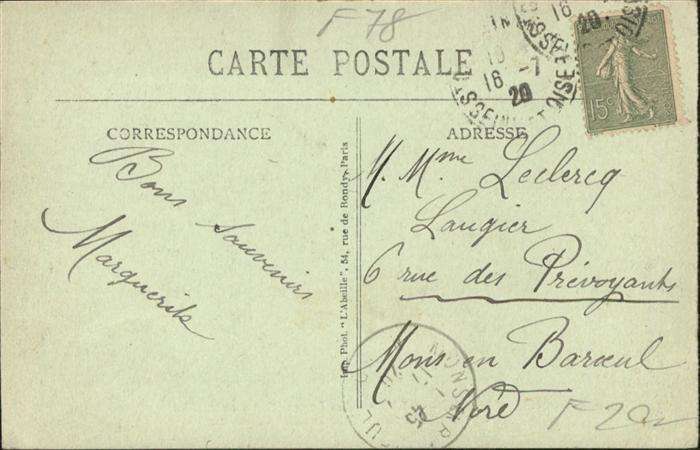 F78
CARTE POSTALE
CORRESPONDANCE
ADRESSE
Bons souvenirs
Marguerite
Imp. Phot. "L'Abeille", 54, rue de Bondy, Paris
M. Mme Leclercq
Laugier
6 rue des Prévoyants
Mons en Baroeul
Nord
15c
16 -1
20
SEINE ET OISE
16
20
MONS
F20